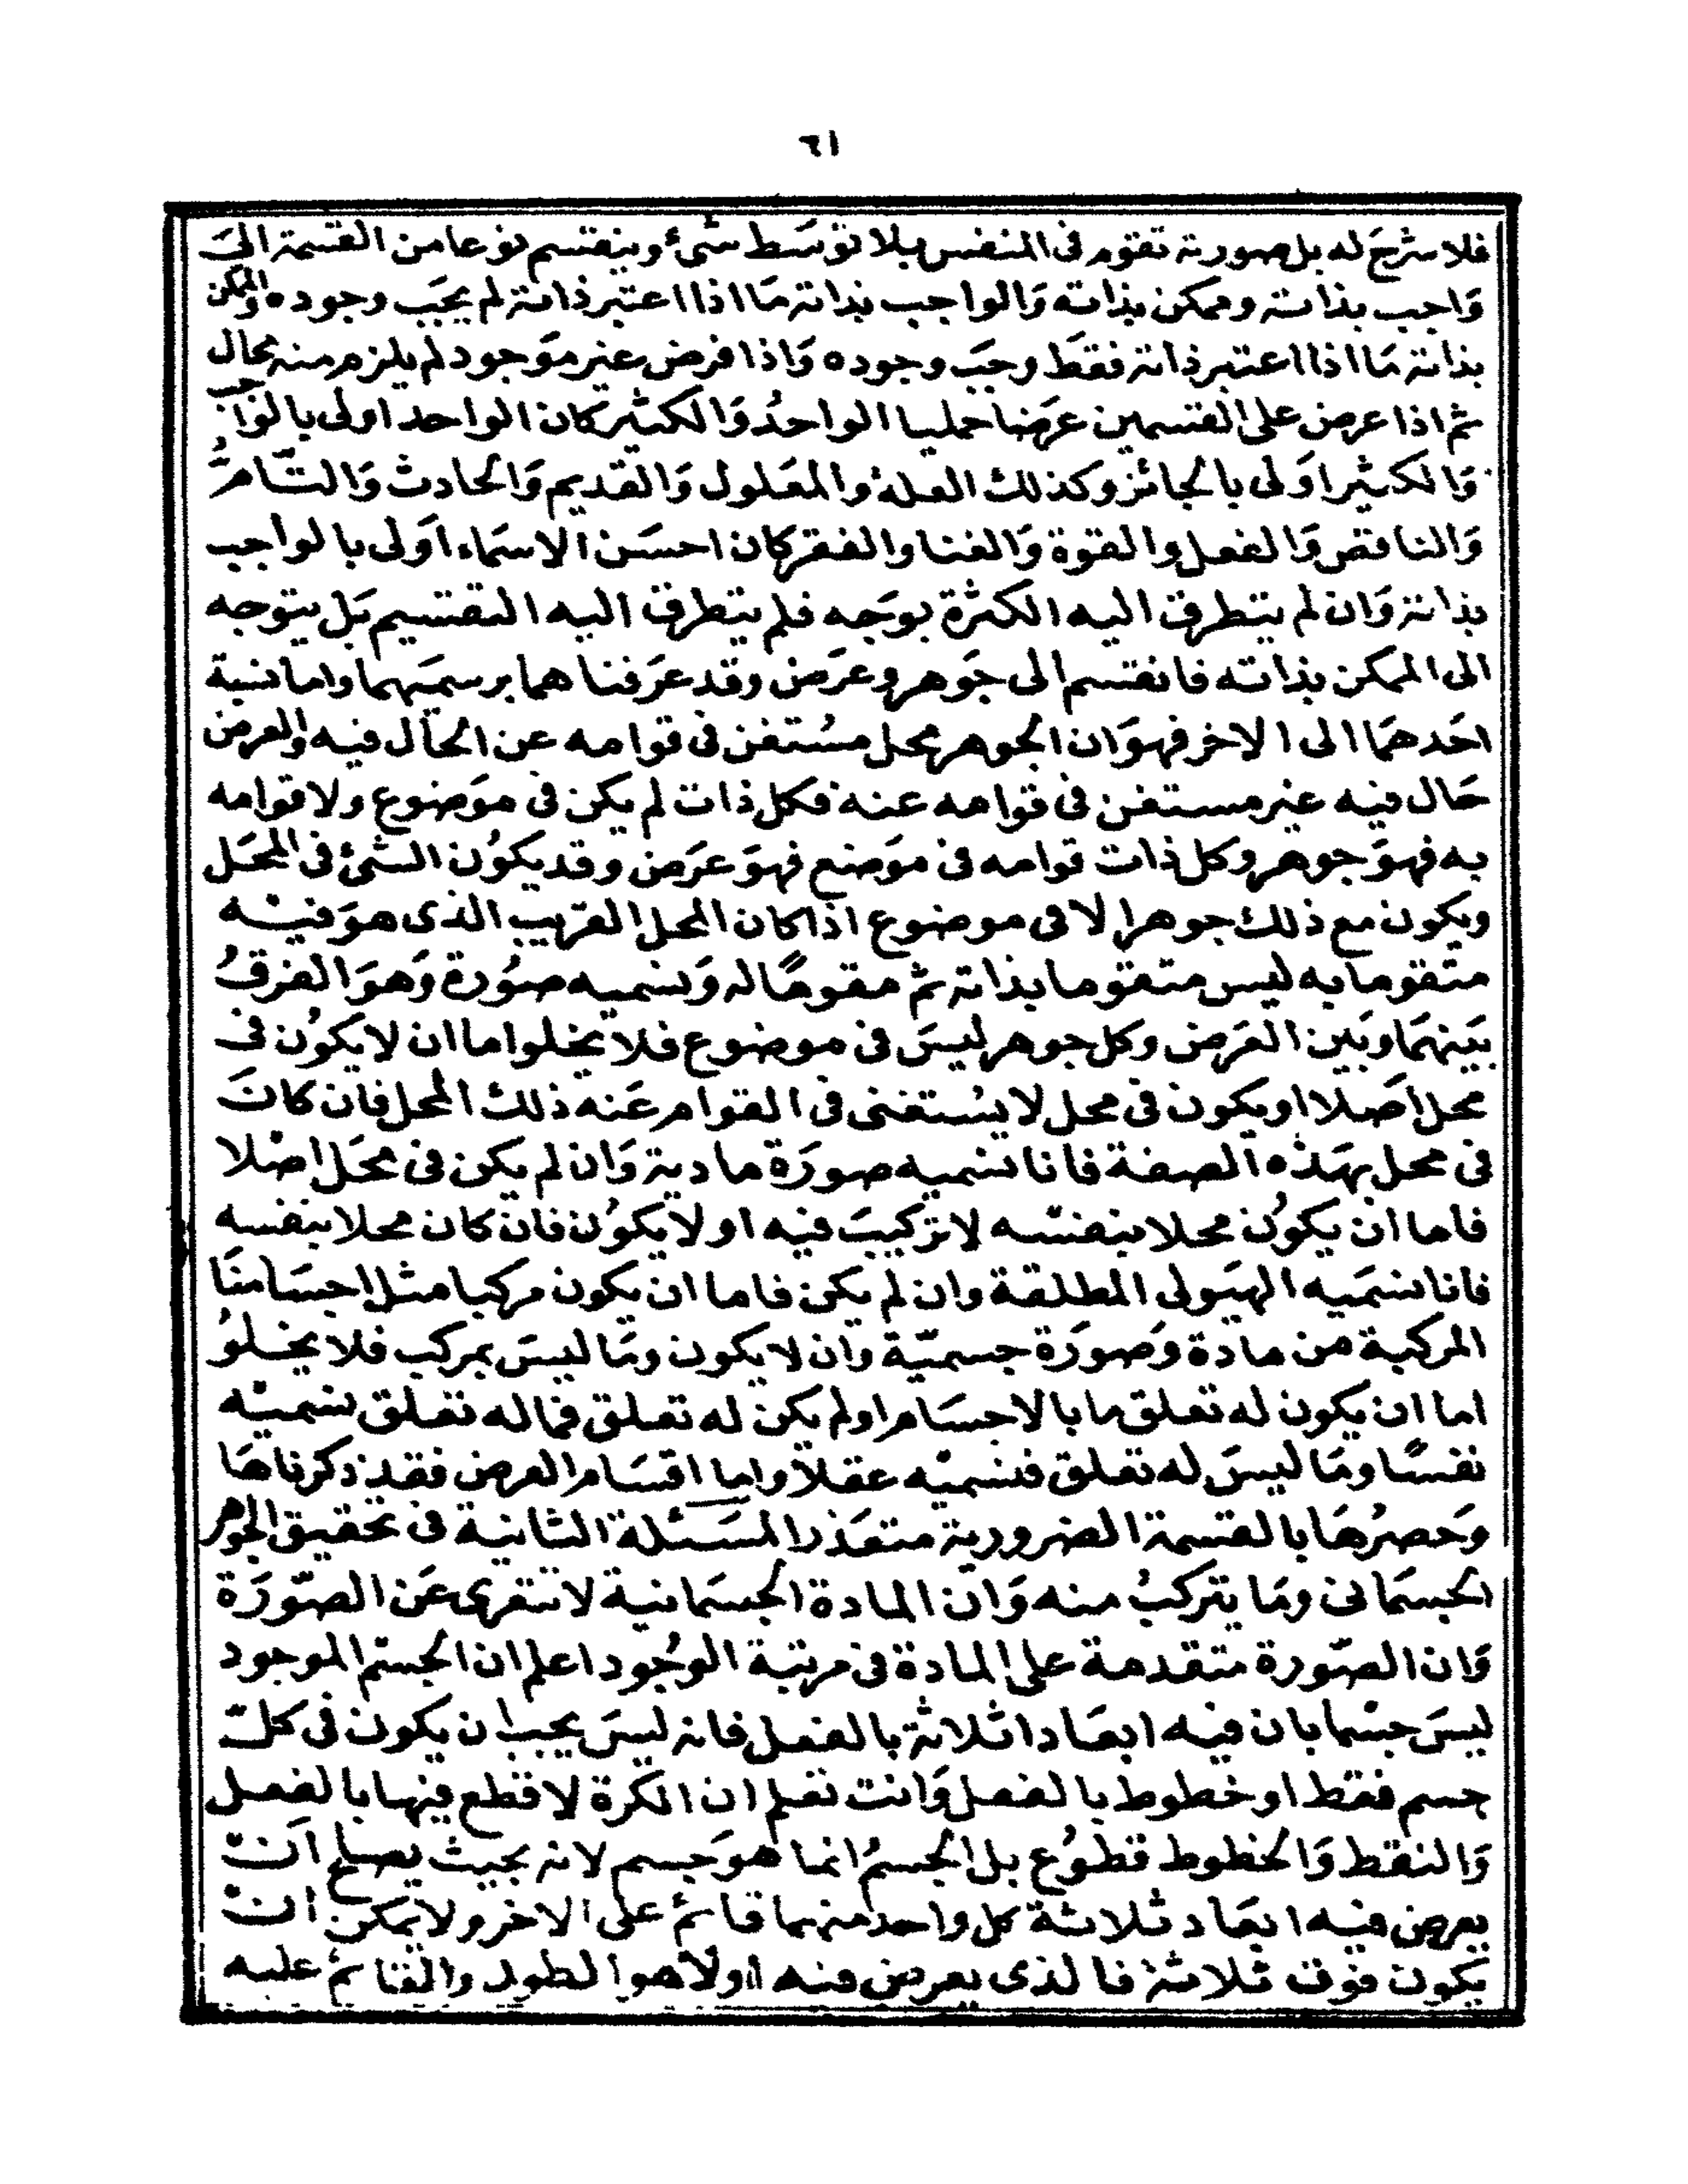 ٦١
فلا شرح له بل صورته تقوم فى النفس بلا توسط شئ وينقسم نوعا من القسمة الى
واجب بذاته وممكن بذاته والواجب بذاته ما اذا اعتبر ذاته لم يجب وجوده والممكن
بذاته ما اذا اعتبر ذاته فقط وجب وجوده واذا فرض غير موجود لم يلزم منه محال
ثم اذا عرض على القسمين عرضا حمليا الواحد والكثير كان الواحد اولى بالواجب
والكثير اولى بالجائز وكذلك العلة والمعلول والقديم والحادث والتام
والناقص والفعل والقوة والغنا والفقر كان احسن الاسماء اولى بالواجب
بذاته وان لم يتطرق اليه الكثرة بوجه فلم يتطرق اليه التقسيم بل يتوجه
الى الممكن بذاته فانقسم الى جوهر وعرض وقد عرفناهما برسميهما واما نسبة
احدهما الى الاخر فهو ان الجوهر محل مستغن فى قوامه عن الحال فيه والعرض
حال فيه غير مستغن فى قوامه عنه فكل ذات لم يكن فى موضوع ولا قوامه
به فهو جوهر وكل ذات قوامه فى موضع فهو عرض وقد يكون الشئ فى المحل
ويكون مع ذلك جوهرا لا فى موضوع اذا كان المحل القريب الذى هو فيه
متقوما به ليس متقوما بذاته ثم مقوما له ونسميه صورة وهو الفرق
بينهما وبين العرض وكل جوهر ليس فى موضوع فلا يخلوا ما ان لا يكون فى
محل اصلا او يكون فى محل لا يستغنى فى القوام عنه ذلك المحل فان كان
فى محل بهذه الصفة فانا نسميه صورة مادية وان لم يكن فى محل اصلا
فاما ان يكون محلا بنفسه لا تركيب فيه او لا يكون فان كان محلا بنفسه
فانا نسميه الهيولى المطلقة وان لم يكن فاما ان يكون مركبا مثل اجسامنا
المركبة من مادة وصورة جسمية وان لا يكون وما ليس بمركب فلا يخلو
اما ان يكون له تعلق ما بالاجسام او لم يكن له تعلق فما له تعلق نسميه
نفسا وما ليس له تعلق فنسميه عقلا واما اقسام العرض فقد ذكرناها
وحصرها بالقسمة الضرورية متعذر المسئلة الثانية فى تحقيق الجوهر
الجسمانى وما يتركب منه وان المادة الجسمانية لا تتعرى عن الصورة
وان الصورة متقدمة على المادة فى مرتبة الوجود اعلم ان الجسم الموجود
ليس جسما بان فيه ابعادا ثلاثة بالفعل فانه ليس يجب ان يكون فى كل
جسم فقط او خطوط بالفعل وانت تعلم ان الكرة لا قطع فيها بالفعل
والنقط والخطوط قطوع بل الجسم انما هو جسم لانه بحيث يصلح ان
يعرض فيه ابعاد ثلاثة كل واحد منهما قائم على الاخر ولا يمكن ان
يكون فوق ثلاثة فالذى يعرض فيه اولا هو الطول والقائم عليه